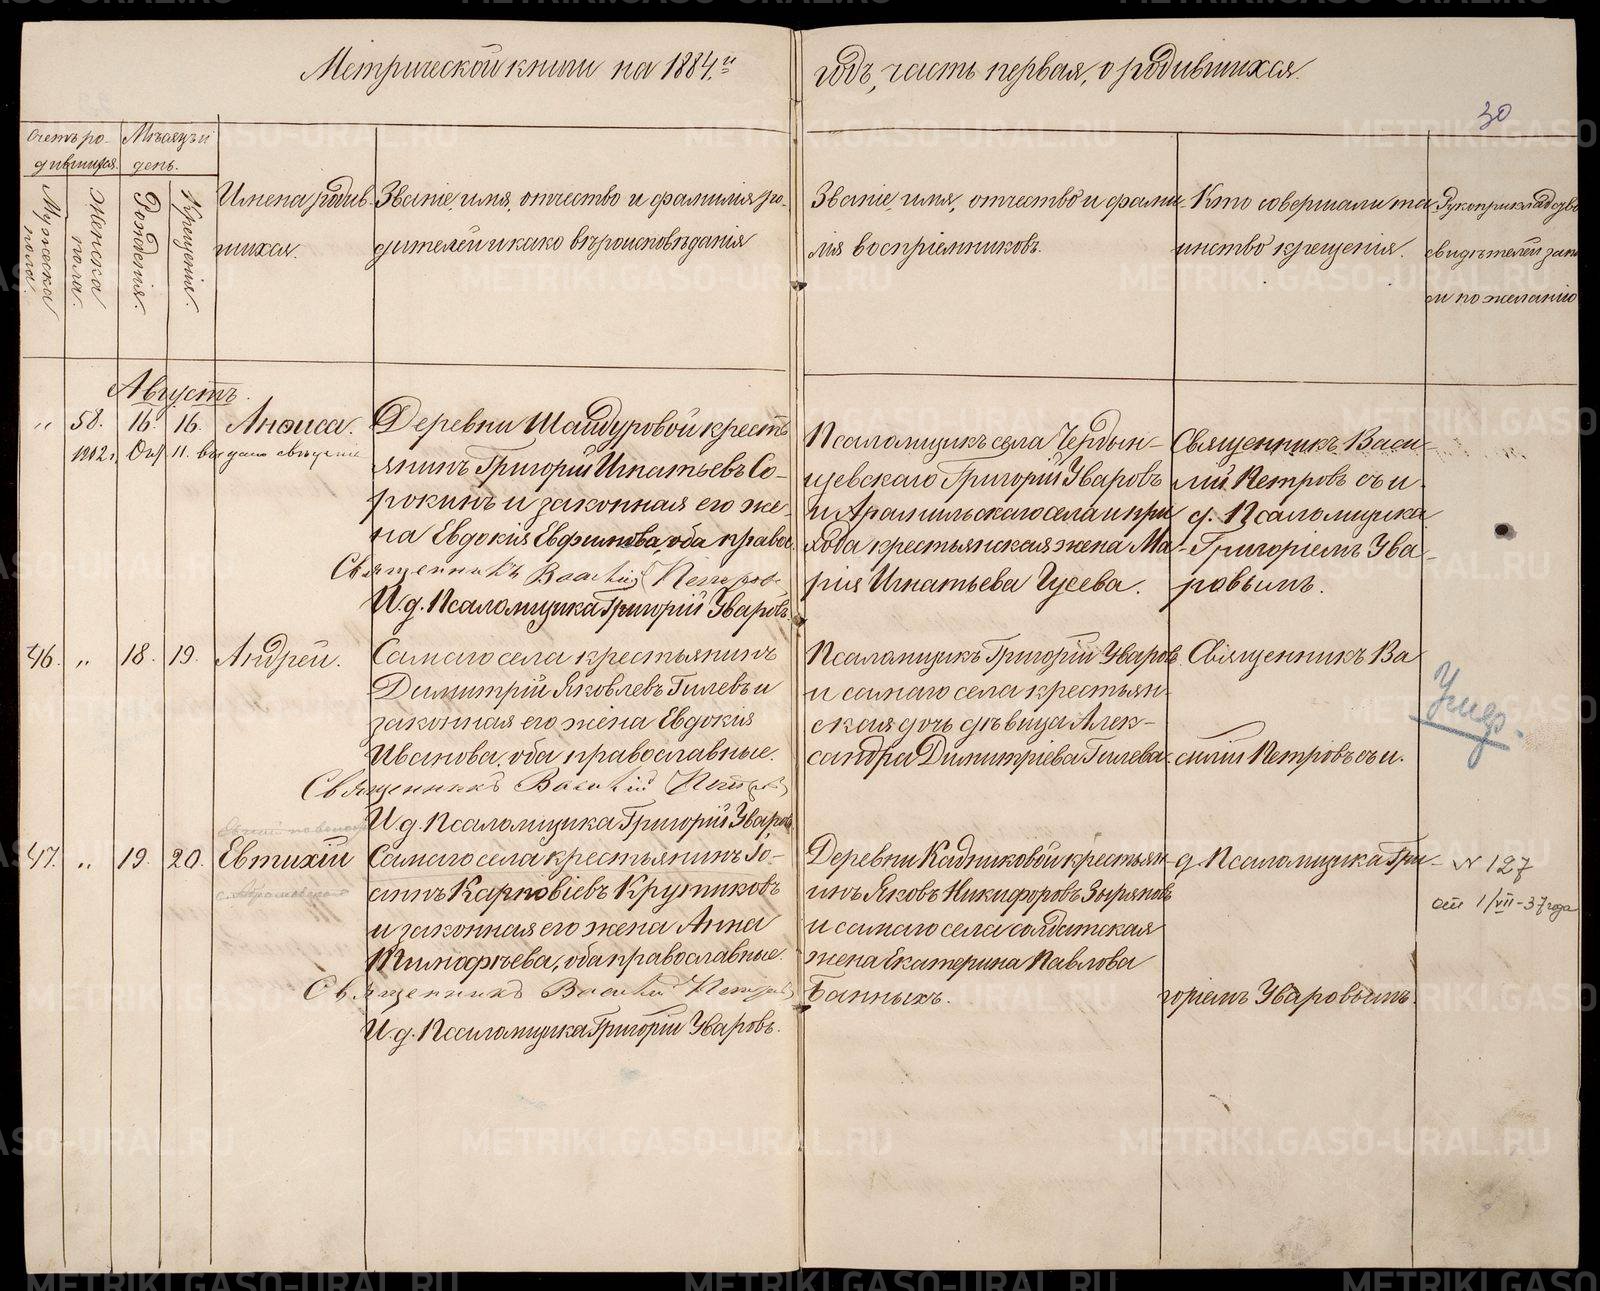 Метрической книги на 1884.й годъ, часть первая, о родившихся.
30
Счетъ ро-
дившихся.
Мѣсяцъ и
день.
Мужеска
пола.
Женска
пола.
Рожденія.
Крещенія.
Имена родив-
шихся.
Званіе, имя, отчество и фамилія ро-
дителей и како въроисповѣданія
Званіе, имя, отчество и фами-
лія воспріемниковъ.
Кто совершали та
инство крещенія.
Рукоприкладство
свидѣтелей запи
си по желанію
Августъ.
" 58. 16. 16. Анѳиса.
1902 г. Окт 11. выдано
Деревни Шайдуровой кресть
янинъ Григорій Игнатьевъ Со-
рокинъ и законная его же-
на Евдокія Евфимова, оба правос
Священникъ Василій Петровъ
И. д. Псаломщика Григорій Уваровъ.
Псаломщикъ села Чердын-
цевскаго Григорій Уваровъ
и Арамильскаго села и при
хода крестьянская жена Ма-
рія Игнатьева Гусева.
Священникъ Васи-
лій Петровъ съ и.
д. Псаломщика
Григоріемъ Ува-
ровымъ.
46. " 18. 19. Андрей.
Самаго села крестьянинъ
Димитрій Яковлевъ Гилевъ и
законная его жена Евдокія
Иванова, оба православные.
Священникъ Василій Петровъ
И. д. Псаломщика Григорій Уваровъ
Псаломщикъ Григорій Уваровъ
и самаго села крестьян-
ская дочь дѣвица Алек-
сандра Димитріева Гилева.
Священникъ Ва
силій Петровъ съ и.
Умер.
47. " 19. 20. Евтихій
Самаго села крестьянинъ Іо-
аннъ Карповіевъ Кругликовъ
и законная его жена Анна
Тимофѣева, оба православные.
Священникъ Василій Петровъ
И. д. Псаломщика Григорій Уваровъ.
Деревни Кадниковой крестьян-
инъ Яковъ Никифоровъ Зыряновъ
и самаго села солдатская
жена Екатерина Павлова
Банныхъ.
д. Псаломщика Гри-
горіемъ Уваровымъ.
N 127
от 1/VII-37 года
METRIKI.GASO-URAL.RU